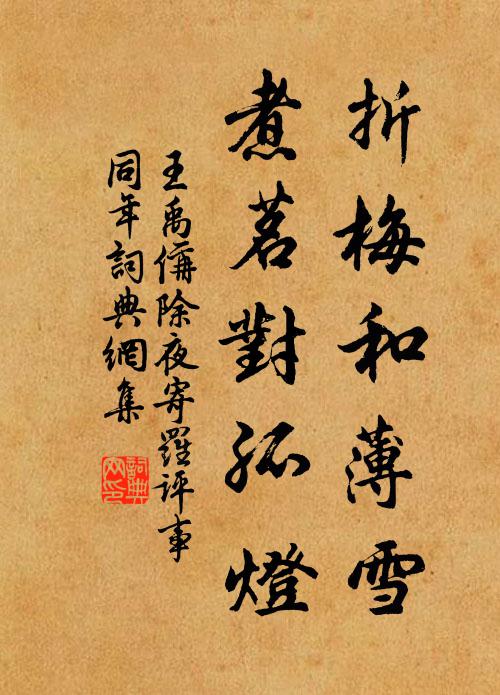 折梅和薄雪
煮茗對孤燈
王禹偁除夜寄羅評事
同年詞典網集
詞典網印